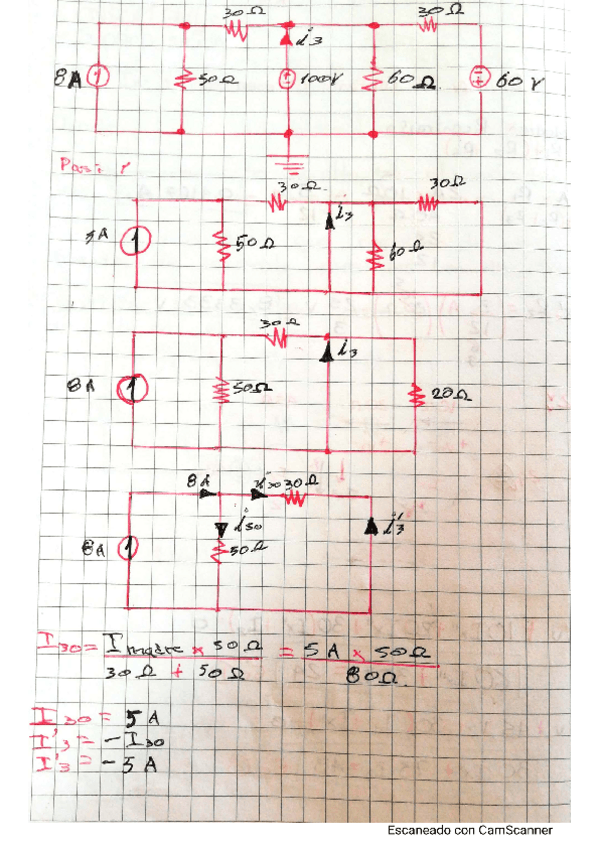 30Ω i3 30Ω
8A 50Ω 100V 60Ω 60V
Paso 1
30Ω 30Ω
i3
50Ω 60Ω
30Ω
i3
8A 50Ω 20Ω
8A 30Ω
i50 i'3
8A 50Ω
I30 = Imadre x 50Ω = 5A x 50Ω
30Ω + 50Ω 80Ω
I30 = 5A
I'3 = -I30
I'3 = -5A
Escaneado con CamScanner